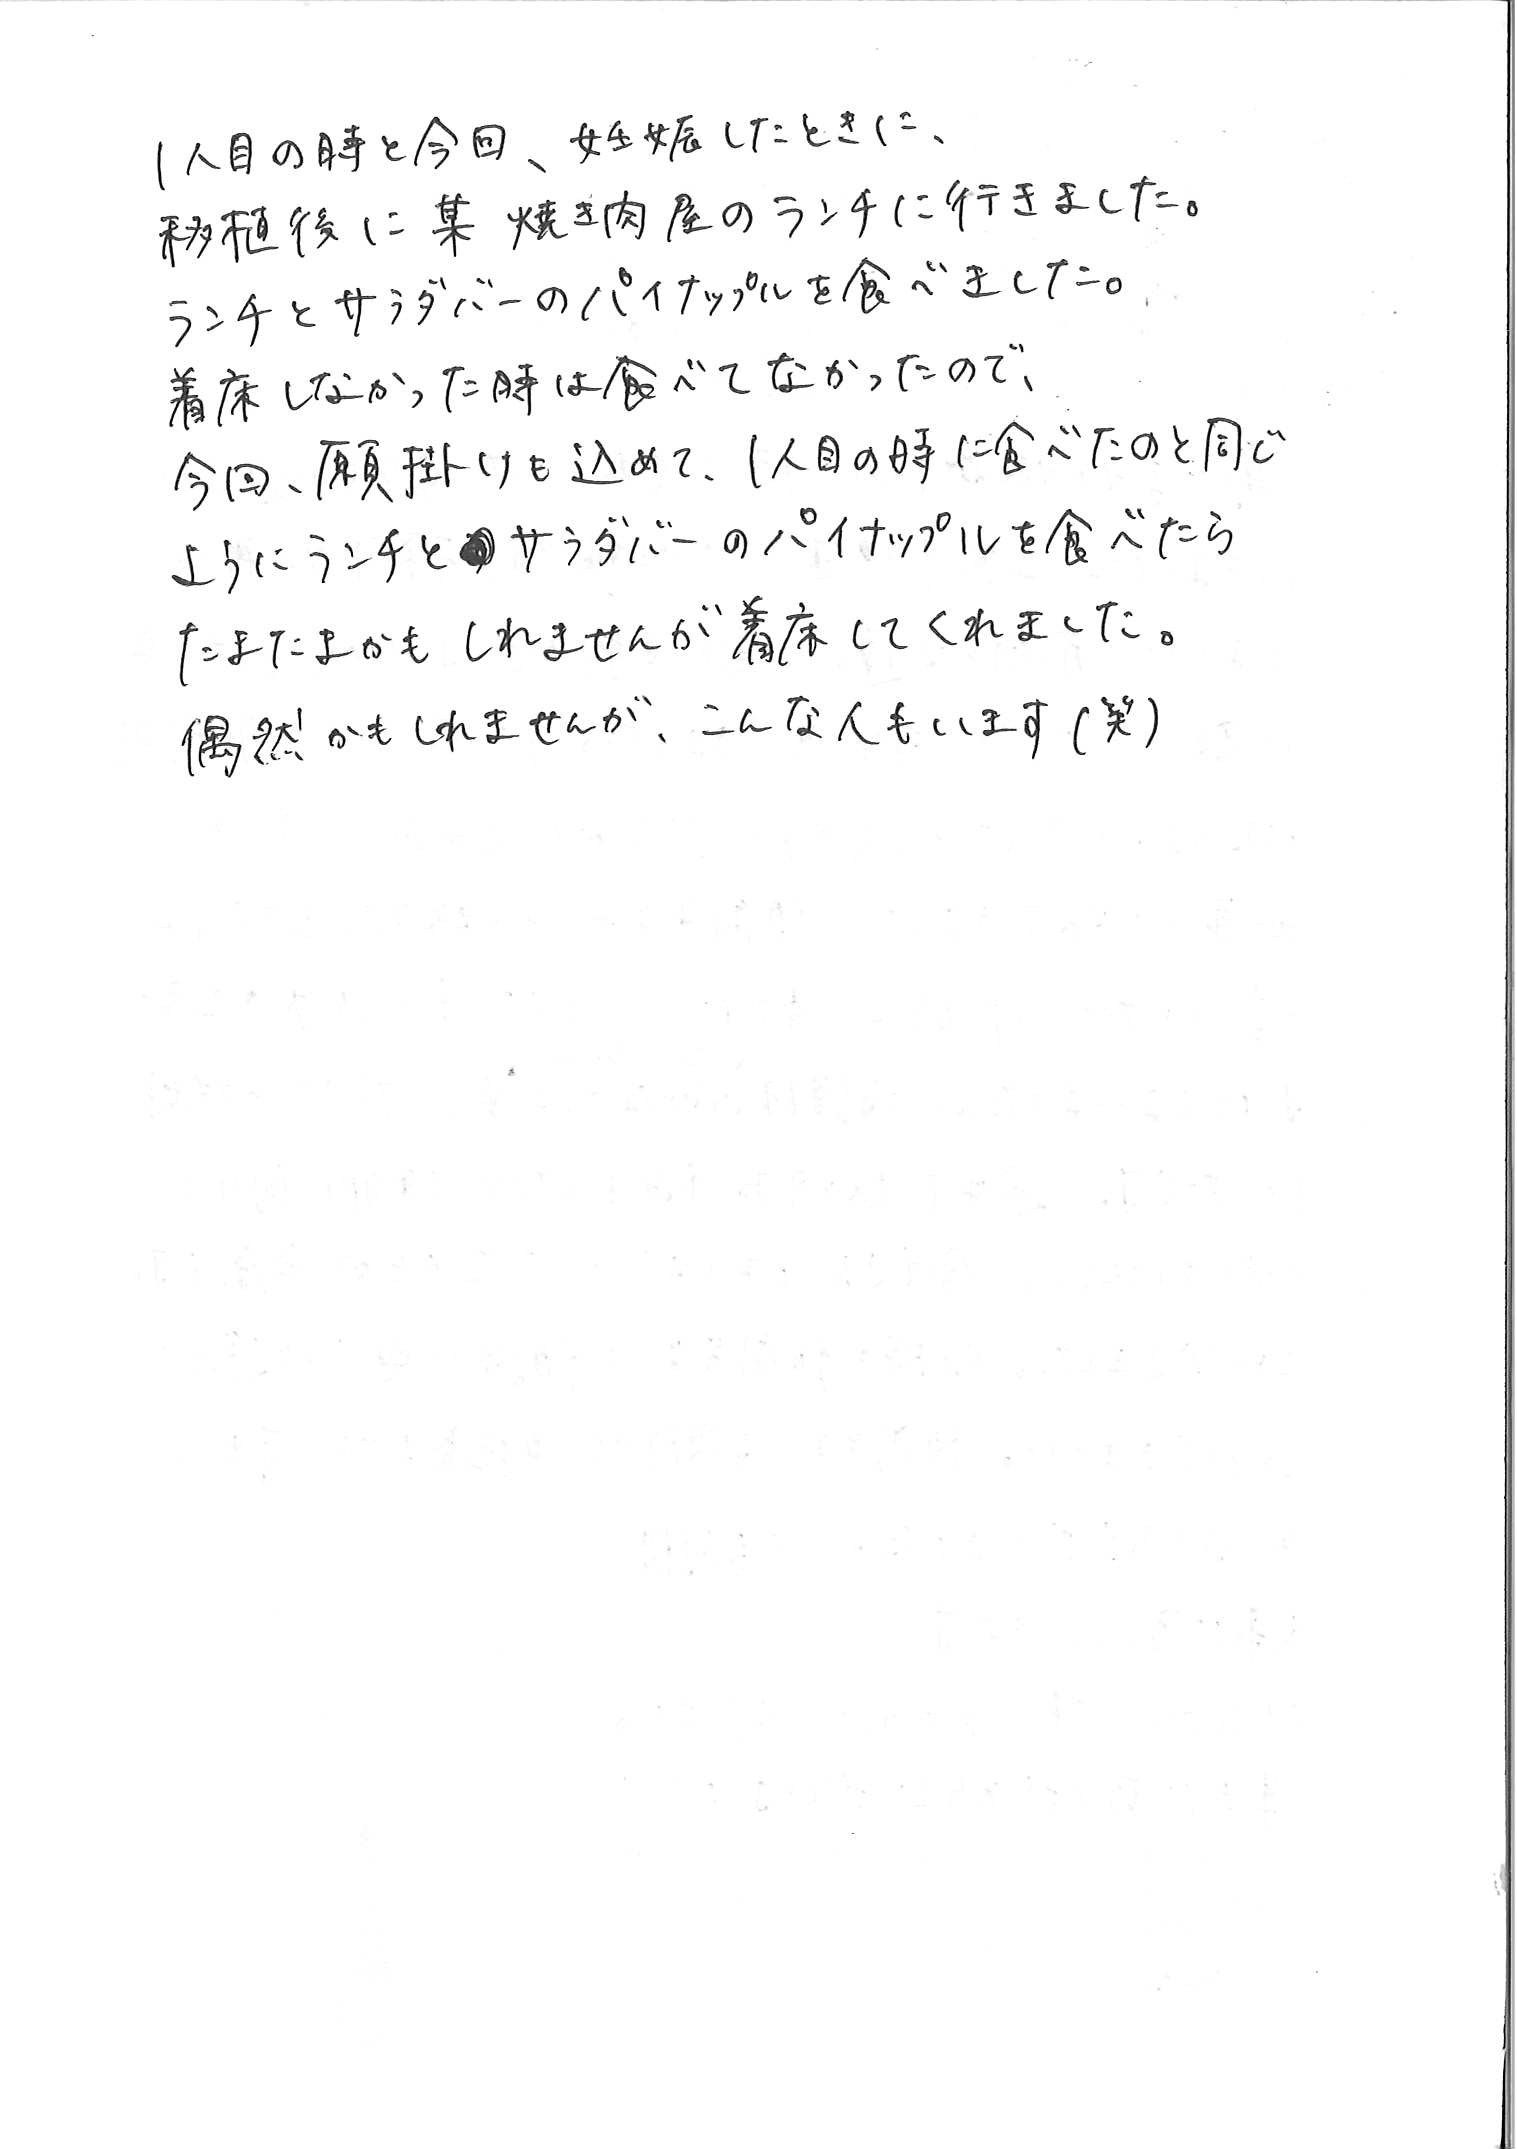 1人目の時と今回、妊娠したときに、
移植後に某焼き肉屋のランチに行きました。
ランチとサラダバーのパイナップルを食べました。
着床しなかった時は食べてなかったので、
今回、願掛けも込めて、1人目の時に食べたのと同じ
ようにランチとサラダバーのパイナップルを食べたら
たまたまかもしれませんが着床してくれました。
偶然かもしれませんが、こんな人もいます(笑)